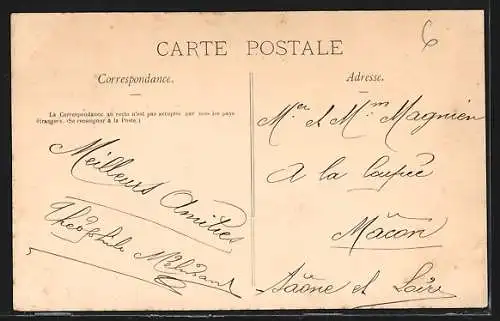 CARTE POSTALE
6
Correspondance.
Adresse.
La Correspondance au recto n'est pas acceptée par tous les pays
étrangers. (Se renseigner à la Poste.)
Meilleurs Amitiés
Théophile
Mr et Mme Magnien
A la
Mâcon
Saône et Loire